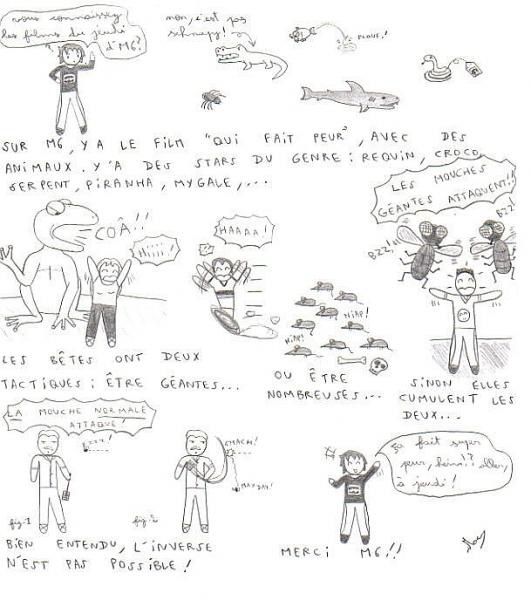 vous connaissez
les films du jeudi
d'M6?
non, c'est pas
schnapy!
PLOUF!
SUR M6, Y A LE FILM "QUI FAIT PEUR", AVEC DES
ANIMAUX. Y'A DES STARS DU GENRE: REQUIN, CROCO,
SERPENT, PIRANHA, MYGALE,...
COÂ!!
Hiiiii!
HAAAA!
LES MOUCHES
GÉANTES ATTAQUENT!!
BZZ!
BZZ!
NIAP!
NIAP!
NIAP!
LES BÊTES ONT DEUX
TACTIQUES: ÊTRE GÉANTES...
OU ÊTRE
NOMBREUSES...
SINON ELLES
CUMULENT LES
DEUX...
LA MOUCHE NORMALE
ATTAQUE!
SMACH!
MAYDAY!
fig.1
fig.2
BIEN ENTENDU, L'INVERSE
N'EST PAS POSSIBLE!
ça fait super
peur, hein!? allez,
à jeudi!
MERCI M6!!